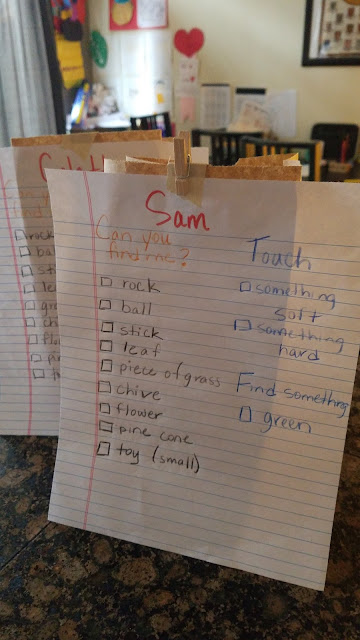 Sam
Can you
find me?
rock
ball
stick
leaf
piece of grass
chive
flower
pine cone
toy (small)
Touch
something
soft
something
hard
Find something
green